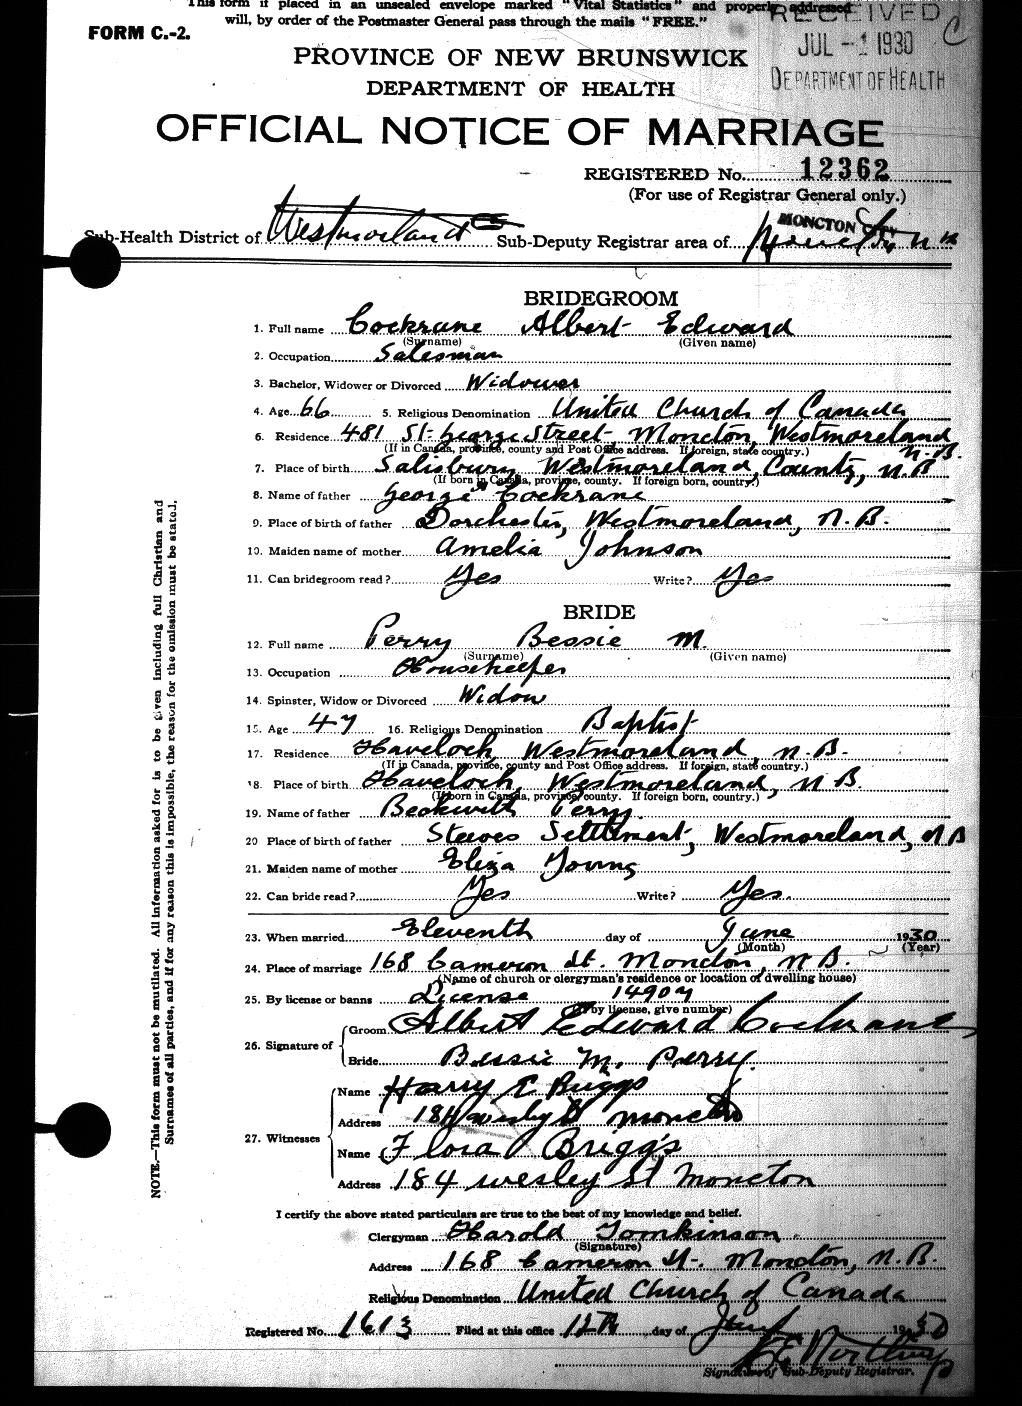 This form if placed in an unsealed envelope marked "Vital Statistics" and properly addressed
will, by order of the Postmaster General pass through the mails "FREE."
RECEIVED
FORM C.-2.
JUL -1 1930
C
PROVINCE OF NEW BRUNSWICK
DEPARTMENT OF HEALTH
DEPARTMENT OF HEALTH
OFFICIAL NOTICE OF MARRIAGE
REGISTERED No. 12362
(For use of Registrar General only.)
MONCTON CITY
Sub-Health District of Westmorland Sub-Deputy Registrar area of Moncton N B
BRIDEGROOM
1. Full name Cockrane Albert Edward
(Surname) (Given name)
2. Occupation Salesman
3. Bachelor, Widower or Divorced Widower
4. Age 66 5. Religious Denomination United Church of Canada
6. Residence 481 St George Street Moncton, Westmoreland N.B.
(If in Canada, province, county and Post Office address. If foreign, state country.)
7. Place of birth Salisbury Westmoreland County, N.B
(If born in Canada, province, county. If foreign born, country.)
8. Name of father George Cockrane
9. Place of birth of father Dorchester, Westmoreland, N.B.
10. Maiden name of mother Amelia Johnson
11. Can bridegroom read? Yes Write? Yes
BRIDE
12. Full name Perry Bessie M.
(Surname) (Given name)
13. Occupation Housekeeper
14. Spinster, Widow or Divorced Widow
15. Age 47 16. Religious Denomination Baptist
17. Residence Havelock, Westmoreland, N.B.
(If in Canada, province, county and Post Office address. If foreign, state country.)
18. Place of birth Havelock, Westmoreland, N B.
(If born in Canada, province/county. If foreign born, country.)
19. Name of father Beckwith Perry.
20 Place of birth of father Steeves Settlement, Westmoreland, N B
21. Maiden name of mother Eliza Young
22. Can bride read? Yes Write? Yes.
23. When married Eleventh day of June 1930
(Month) (Year)
24. Place of marriage 168 Cameron St. Moncton, N B.
(Name of church or clergyman's residence or location of dwelling house)
25. By license or banns License 14907
(If by license, give number)
26. Signature of
Groom Albert Edward Cochrane
Bride Bessie M. Perry.
27. Witnesses
Name Harry E Briggs
Address 184 Wesley St Moncton
Name Flora Briggs
Address 184 Wesley St Moncton
I certify the above stated particulars are true to the best of my knowledge and belief.
Clergyman Harold Tomkinson
(Signature)
Address 168 Cameron St. Moncton, N.B.
Religious Denomination United Church of Canada
Registered No. 1613 Filed at this office 12th day of June 1930
Signature of Sub-Deputy Registrar.
NOTE.—This form must not be mutilated. All information asked for is to be given including full Christian and
Surnames of all parties, and if for any reason this is impossible, the reason for the omission must be stated.